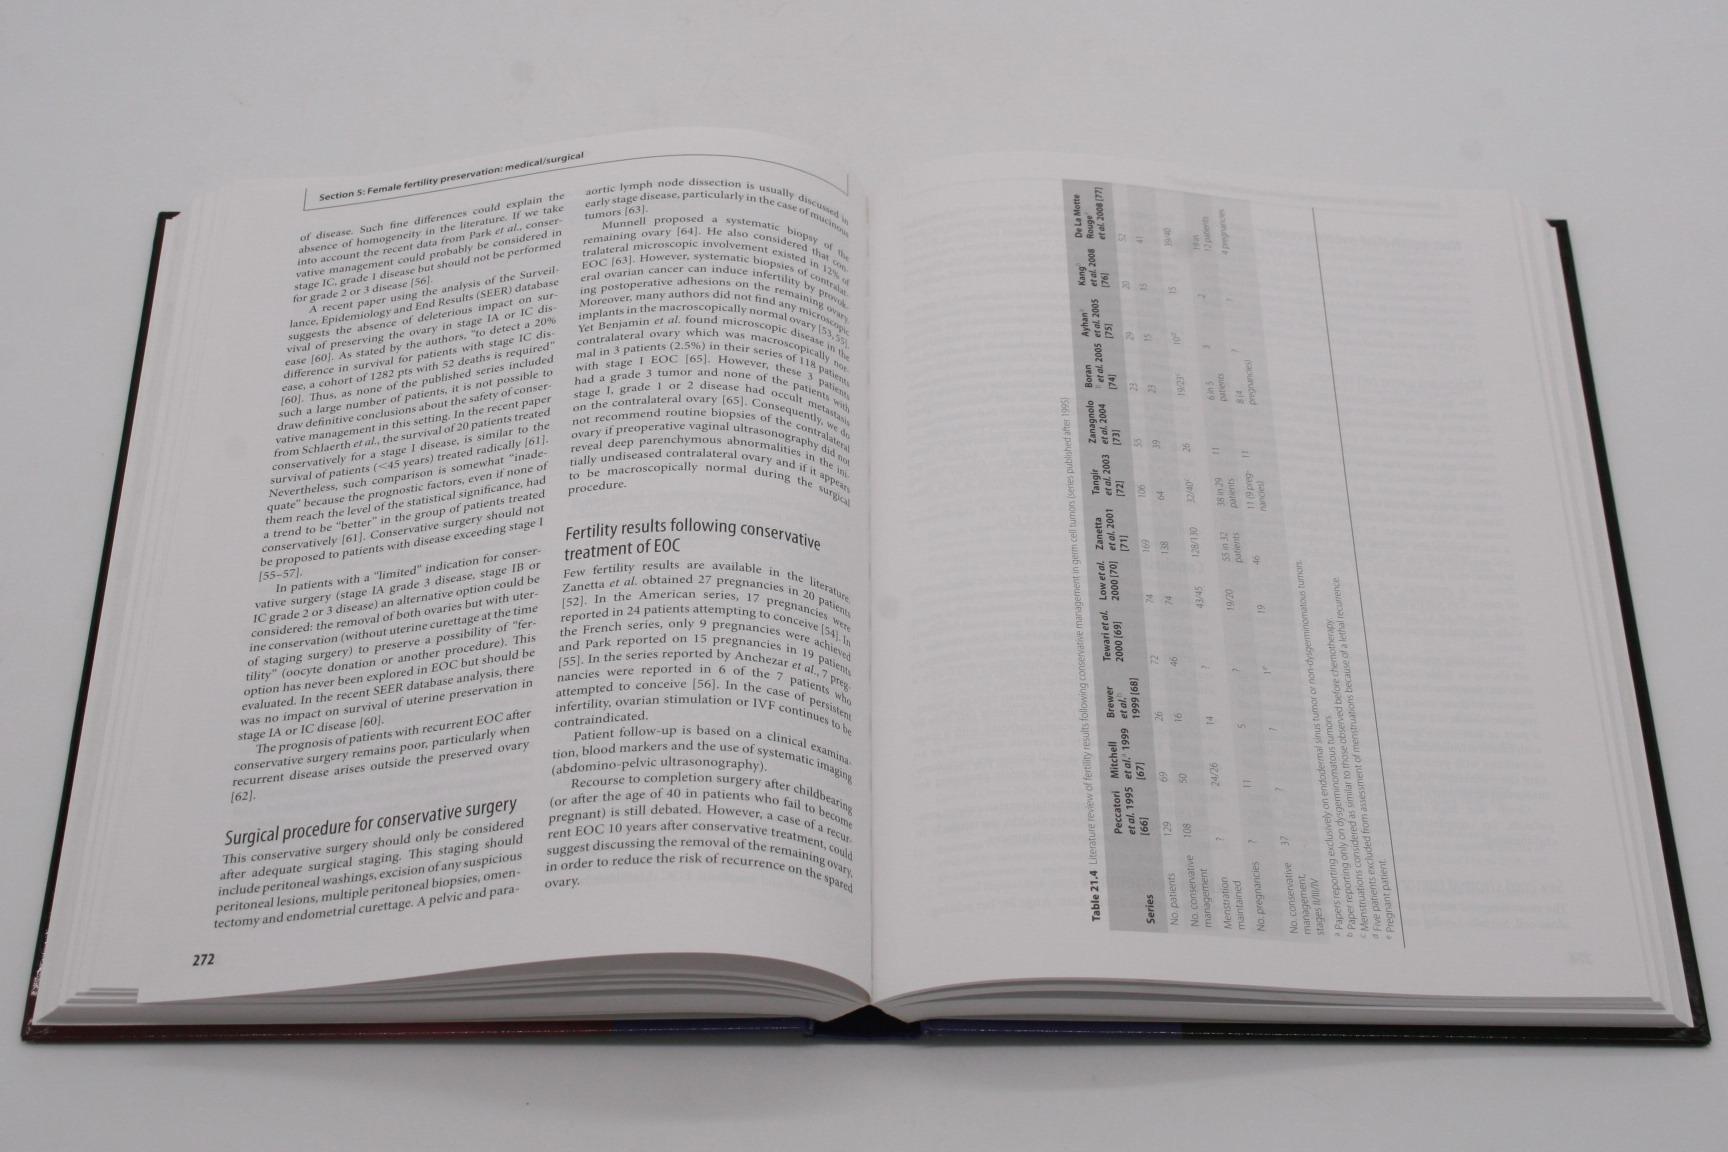 Section 5: Female fertility preservation: medical/surgical
of disease. Such fine differences could explain the
absence of homogeneity in the literature. If we take
into account the recent data from Park et al., conser-
vative management could probably be considered in
stage IC, grade 1 disease but should not be performed
for grade 2 or 3 disease [56].
A recent paper using the analysis of the Surveil-
lance, Epidemiology and End Results (SEER) database
suggests the absence of deleterious impact on sur-
vival of preserving the ovary in stage IA or IC dis-
ease [60]. As stated by the authors, "to detect a 20%
difference in survival for patients with stage IC dis-
ease, a cohort of 1282 pts with 52 deaths is required"
[60]. Thus, as none of the published series included
such a large number of patients, it is not possible to
draw definitive conclusions about the safety of conser-
vative management in this setting. In the recent paper
from Schlaerth et al., the survival of 20 patients treated
conservatively for a stage I disease, is similar to the
survival of patients (<45 years) treated radically [61].
Nevertheless, such comparison is somewhat "inade-
quate" because the prognostic factors, even if none of
them reach the level of the statistical significance, had
a trend to be "better" in the group of patients treated
conservatively [61]. Conservative surgery should not
be proposed to patients with disease exceeding stage I
[55–57].
In patients with a "limited" indication for conser-
vative surgery (stage IA grade 3 disease, stage IB or
IC grade 2 or 3 disease) an alternative option could be
considered: the removal of both ovaries but with uter-
ine conservation (without uterine curettage at the time
of staging surgery) to preserve a possibility of "fer-
tility" (oocyte donation or another procedure). This
option has never been explored in EOC but should be
evaluated. In the recent SEER database analysis, there
was no impact on survival of uterine preservation in
stage IA or IC disease [60].
The prognosis of patients with recurrent EOC after
conservative surgery remains poor, particularly when
recurrent disease arises outside the preserved ovary
[62].
Surgical procedure for conservative surgery
This conservative surgery should only be considered
after adequate surgical staging. This staging should
include peritoneal washings, excision of any suspicious
peritoneal lesions, multiple peritoneal biopsies, omen-
tectomy and endometrial curettage. A pelvic and para-
aortic lymph node dissection is usually discussed in
early stage disease, particularly in the case of mucinous
tumors [63].
Munnell proposed a systematic biopsy of the
remaining ovary [64]. He also considered that con-
tralateral microscopic involvement existed in 12% of
EOC [63]. However, systematic biopsies of contralat-
eral ovarian cancer can induce infertility by provok-
ing postoperative adhesions on the remaining ovary.
Moreover, many authors did not find any microscopic
implants in the macroscopically normal ovary [53,55].
Yet Benjamin et al. found microscopic disease in the
contralateral ovary which was macroscopically nor-
mal in 3 patients (2.5%) in their series of 118 patients
with stage I EOC [65]. However, these 3 patients
had a grade 3 tumor and none of the patients with
stage I, grade 1 or 2 disease had occult metastasis
on the contralateral ovary [65]. Consequently, we do
not recommend routine biopsies of the contralateral
ovary if preoperative vaginal ultrasonography did not
reveal deep parenchymous abnormalities in the ini-
tially undiseased contralateral ovary and if it appears
to be macroscopically normal during the surgical
procedure.
Fertility results following conservative
treatment of EOC
Few fertility results are available in the literature.
Zanetta et al. obtained 27 pregnancies in 20 patients
[52]. In the American series, 17 pregnancies were
reported in 24 patients attempting to conceive [54]. In
the French series, only 9 pregnancies were achieved
and Park reported on 15 pregnancies in 19 patients
[55]. In the series reported by Anchezar et al., 7 preg-
nancies were reported in 6 of the 7 patients who
attempted to conceive [56]. In the case of persistent
infertility, ovarian stimulation or IVF continues to be
contraindicated.
Patient follow-up is based on a clinical examina-
tion, blood markers and the use of systematic imaging
(abdomino-pelvic ultrasonography).
Recourse to completion surgery after childbearing
(or after the age of 40 in patients who fail to become
pregnant) is still debated. However, a case of a recur-
rent EOC 10 years after conservative treatment, could
suggest discussing the removal of the remaining ovary,
in order to reduce the risk of recurrence on the spared
ovary.
272
Table 21.4 Literature review of fertility results following conservative management in germ cell tumors (series published after 1995)
Series Peccatori et al. 1995 [66] Mitchell et al.ᵃ 1999 [67] Brewer et al.ᵇ 1999 [68] Tewari et al. 2000 [69] Low et al. 2000 [70] Zanetta et al. 2001 [71] Tangir et al. 2003 [72] Zanagnolo et al. 2004 [73] Boran et al. 2005 [74] Ayhan et al. 2005 [75] Kang et al. 2008 [76] De La Motte Rouge et al. 2008 [77]
No. patients 129 69 26 72 74 169 106 55 23 29 20 52
No. conservative management 108 50 16 46 74 138 64 39 23 15 15 41
Menstruation maintained ? 24/26 14 ? 43/45 128/130 32/40ᶜ 26 19/23ᶜ 10ᵈ 15 39/40
No. pregnancies ? 11 5 ? 19/20 55 in 32 patients 38 in 29 patients 11 6 in 5 patients 3 2 19 in 12 patients
No. conservative management, stages II/III/IV 37 ? ? 1ᵉ 19 46 11 (9 pregnancies) 11 8 (4 pregnancies) ? ? 4 pregnancies
ᵃ Papers reporting exclusively on endodermal sinus tumor or non-dysgerminomatous tumors.
ᵇ Paper reporting only on dysgerminomatous tumors.
ᶜ Menstruations considered as similar to those observed before chemotherapy.
ᵈ Five patients excluded from assessment of menstruations because of a lethal recurrence.
ᵉ Pregnant patient.